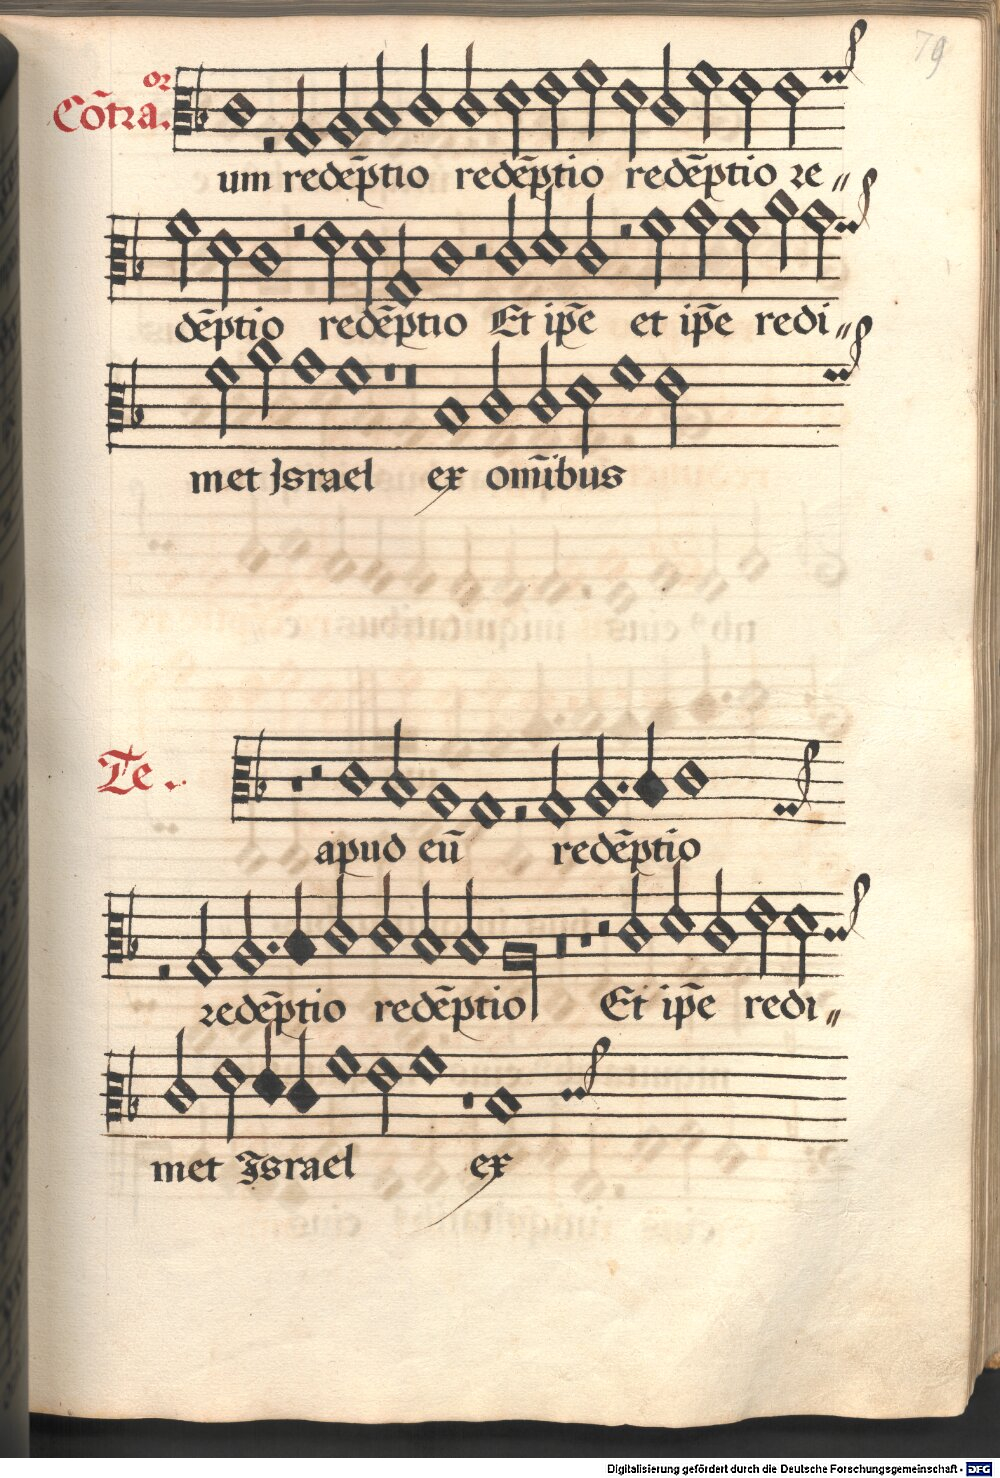 79
Cõtraor.
um redẽptio redẽptio redẽptio re〃
dẽptio redẽptio Et ip̃e et ip̃e redi〃
met Israel ex om̃ibus
Te.
apud eũ redẽptio
redẽptio redẽptio Et ip̃e redi〃
met Israel ex
Digitalisierung gefördert durch die Deutsche Forschungsgemeinschaft - DFG